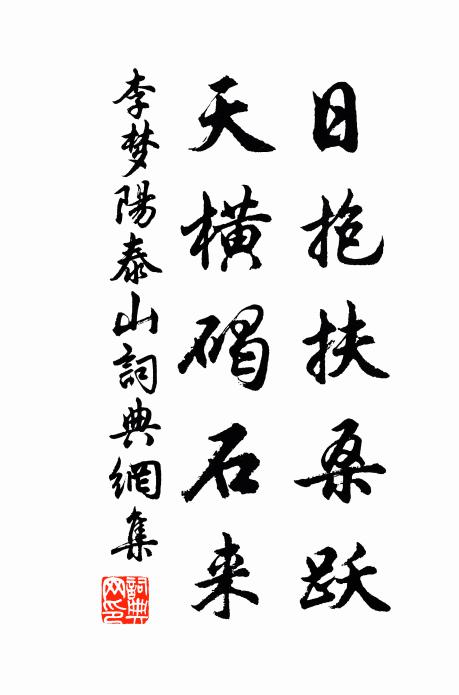 日抱扶桑跃
天横碣石来
李梦陽泰山詞典網集
詞典网印